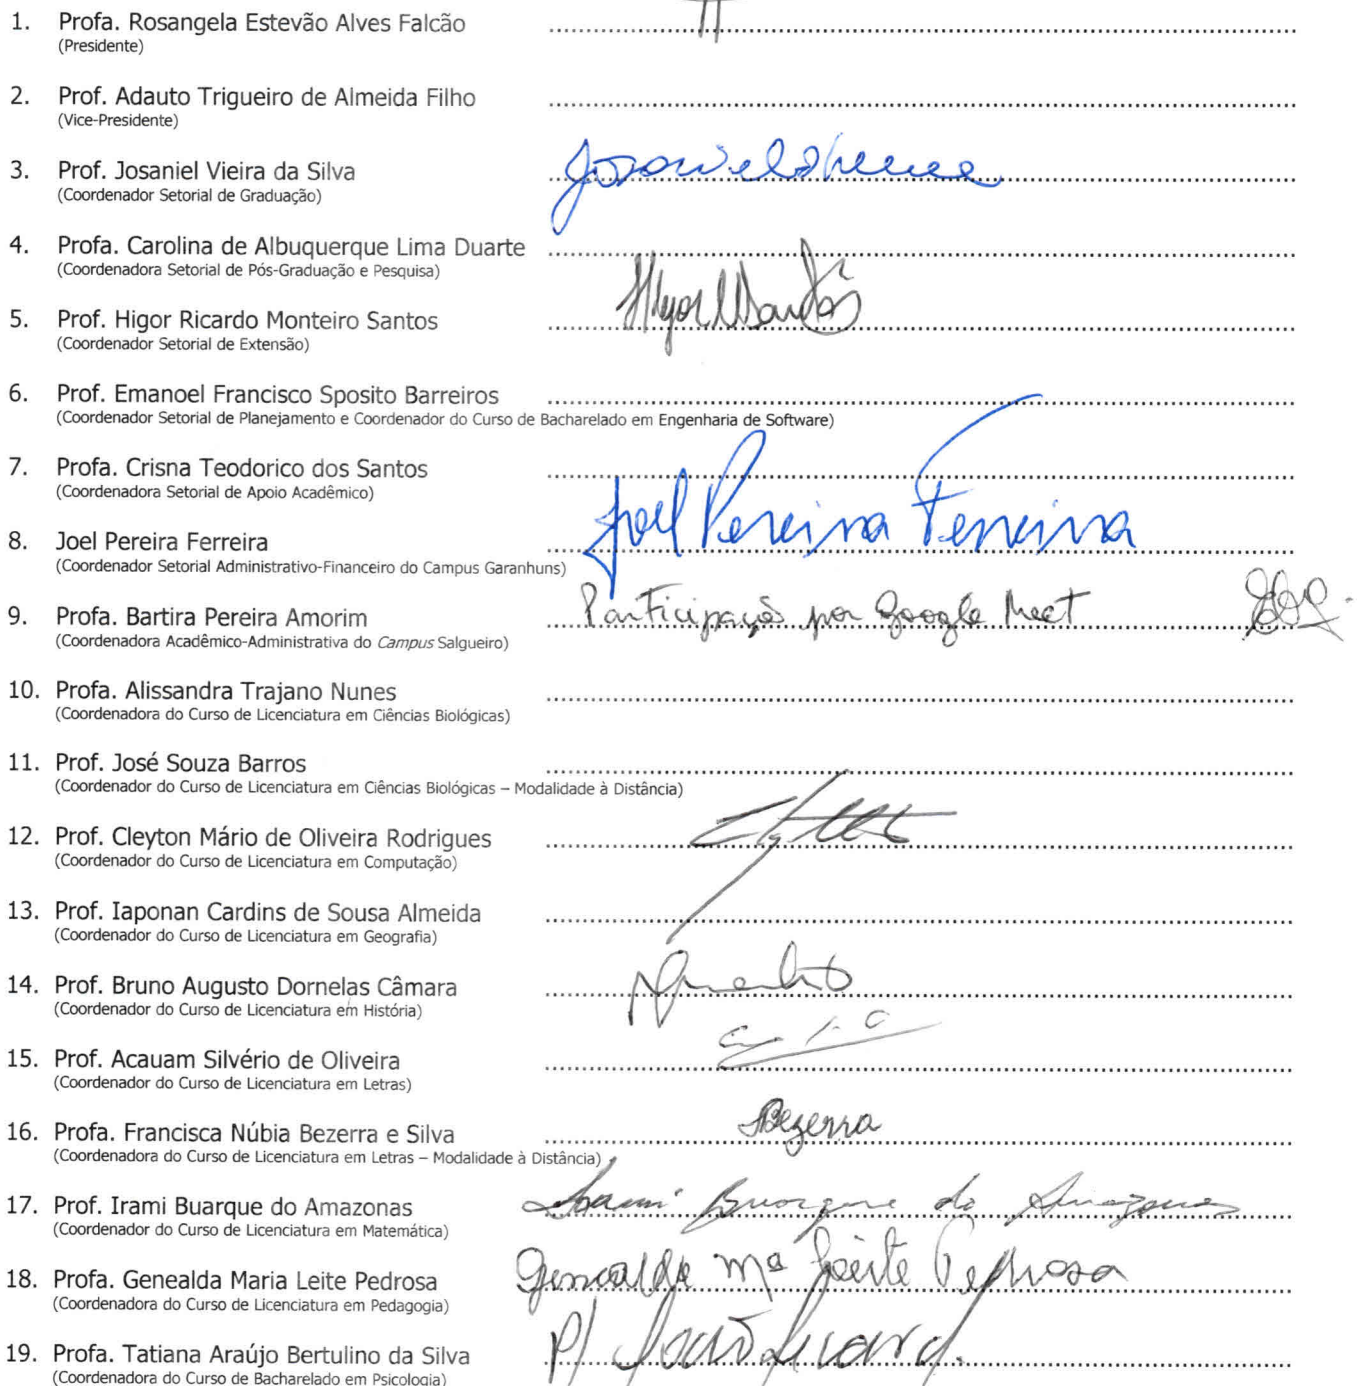 1. Profa. Rosangela Estevão Alves Falcão
(Presidente)
2. Prof. Adauto Trigueiro de Almeida Filho
(Vice-Presidente)
3. Prof. Josaniel Vieira da Silva
(Coordenador Setorial de Graduação)
4. Profa. Carolina de Albuquerque Lima Duarte
(Coordenadora Setorial de Pós-Graduação e Pesquisa)
5. Prof. Higor Ricardo Monteiro Santos
(Coordenador Setorial de Extensão)
6. Prof. Emanoel Francisco Sposito Barreiros
(Coordenador Setorial de Planejamento e Coordenador do Curso de Bacharelado em Engenharia de Software)
7. Profa. Crisna Teodorico dos Santos
(Coordenadora Setorial de Apoio Acadêmico)
8. Joel Pereira Ferreira Joel Pereira Ferreira
(Coordenador Setorial Administrativo-Financeiro do Campus Garanhuns)
9. Profa. Bartira Pereira Amorim Participação por Google Meet
(Coordenadora Acadêmico-Administrativa do Campus Salgueiro)
10. Profa. Alissandra Trajano Nunes
(Coordenadora do Curso de Licenciatura em Ciências Biológicas)
11. Prof. José Souza Barros
(Coordenador do Curso de Licenciatura em Ciências Biológicas – Modalidade à Distância)
12. Prof. Cleyton Mário de Oliveira Rodrigues
(Coordenador do Curso de Licenciatura em Computação)
13. Prof. Iaponan Cardins de Sousa Almeida
(Coordenador do Curso de Licenciatura em Geografia)
14. Prof. Bruno Augusto Dornelas Câmara
(Coordenador do Curso de Licenciatura em História)
15. Prof. Acauam Silvério de Oliveira
(Coordenador do Curso de Licenciatura em Letras)
16. Profa. Francisca Núbia Bezerra e Silva Bezerra
(Coordenadora do Curso de Licenciatura em Letras – Modalidade à Distância)
17. Prof. Irami Buarque do Amazonas Irami Buarque do Amazonas
(Coordenador do Curso de Licenciatura em Matemática)
18. Profa. Genealda Maria Leite Pedrosa Genealda Mª Leite Pedrosa
(Coordenadora do Curso de Licenciatura em Pedagogia)
19. Profa. Tatiana Araújo Bertulino da Silva P/
(Coordenadora do Curso de Bacharelado em Psicologia)